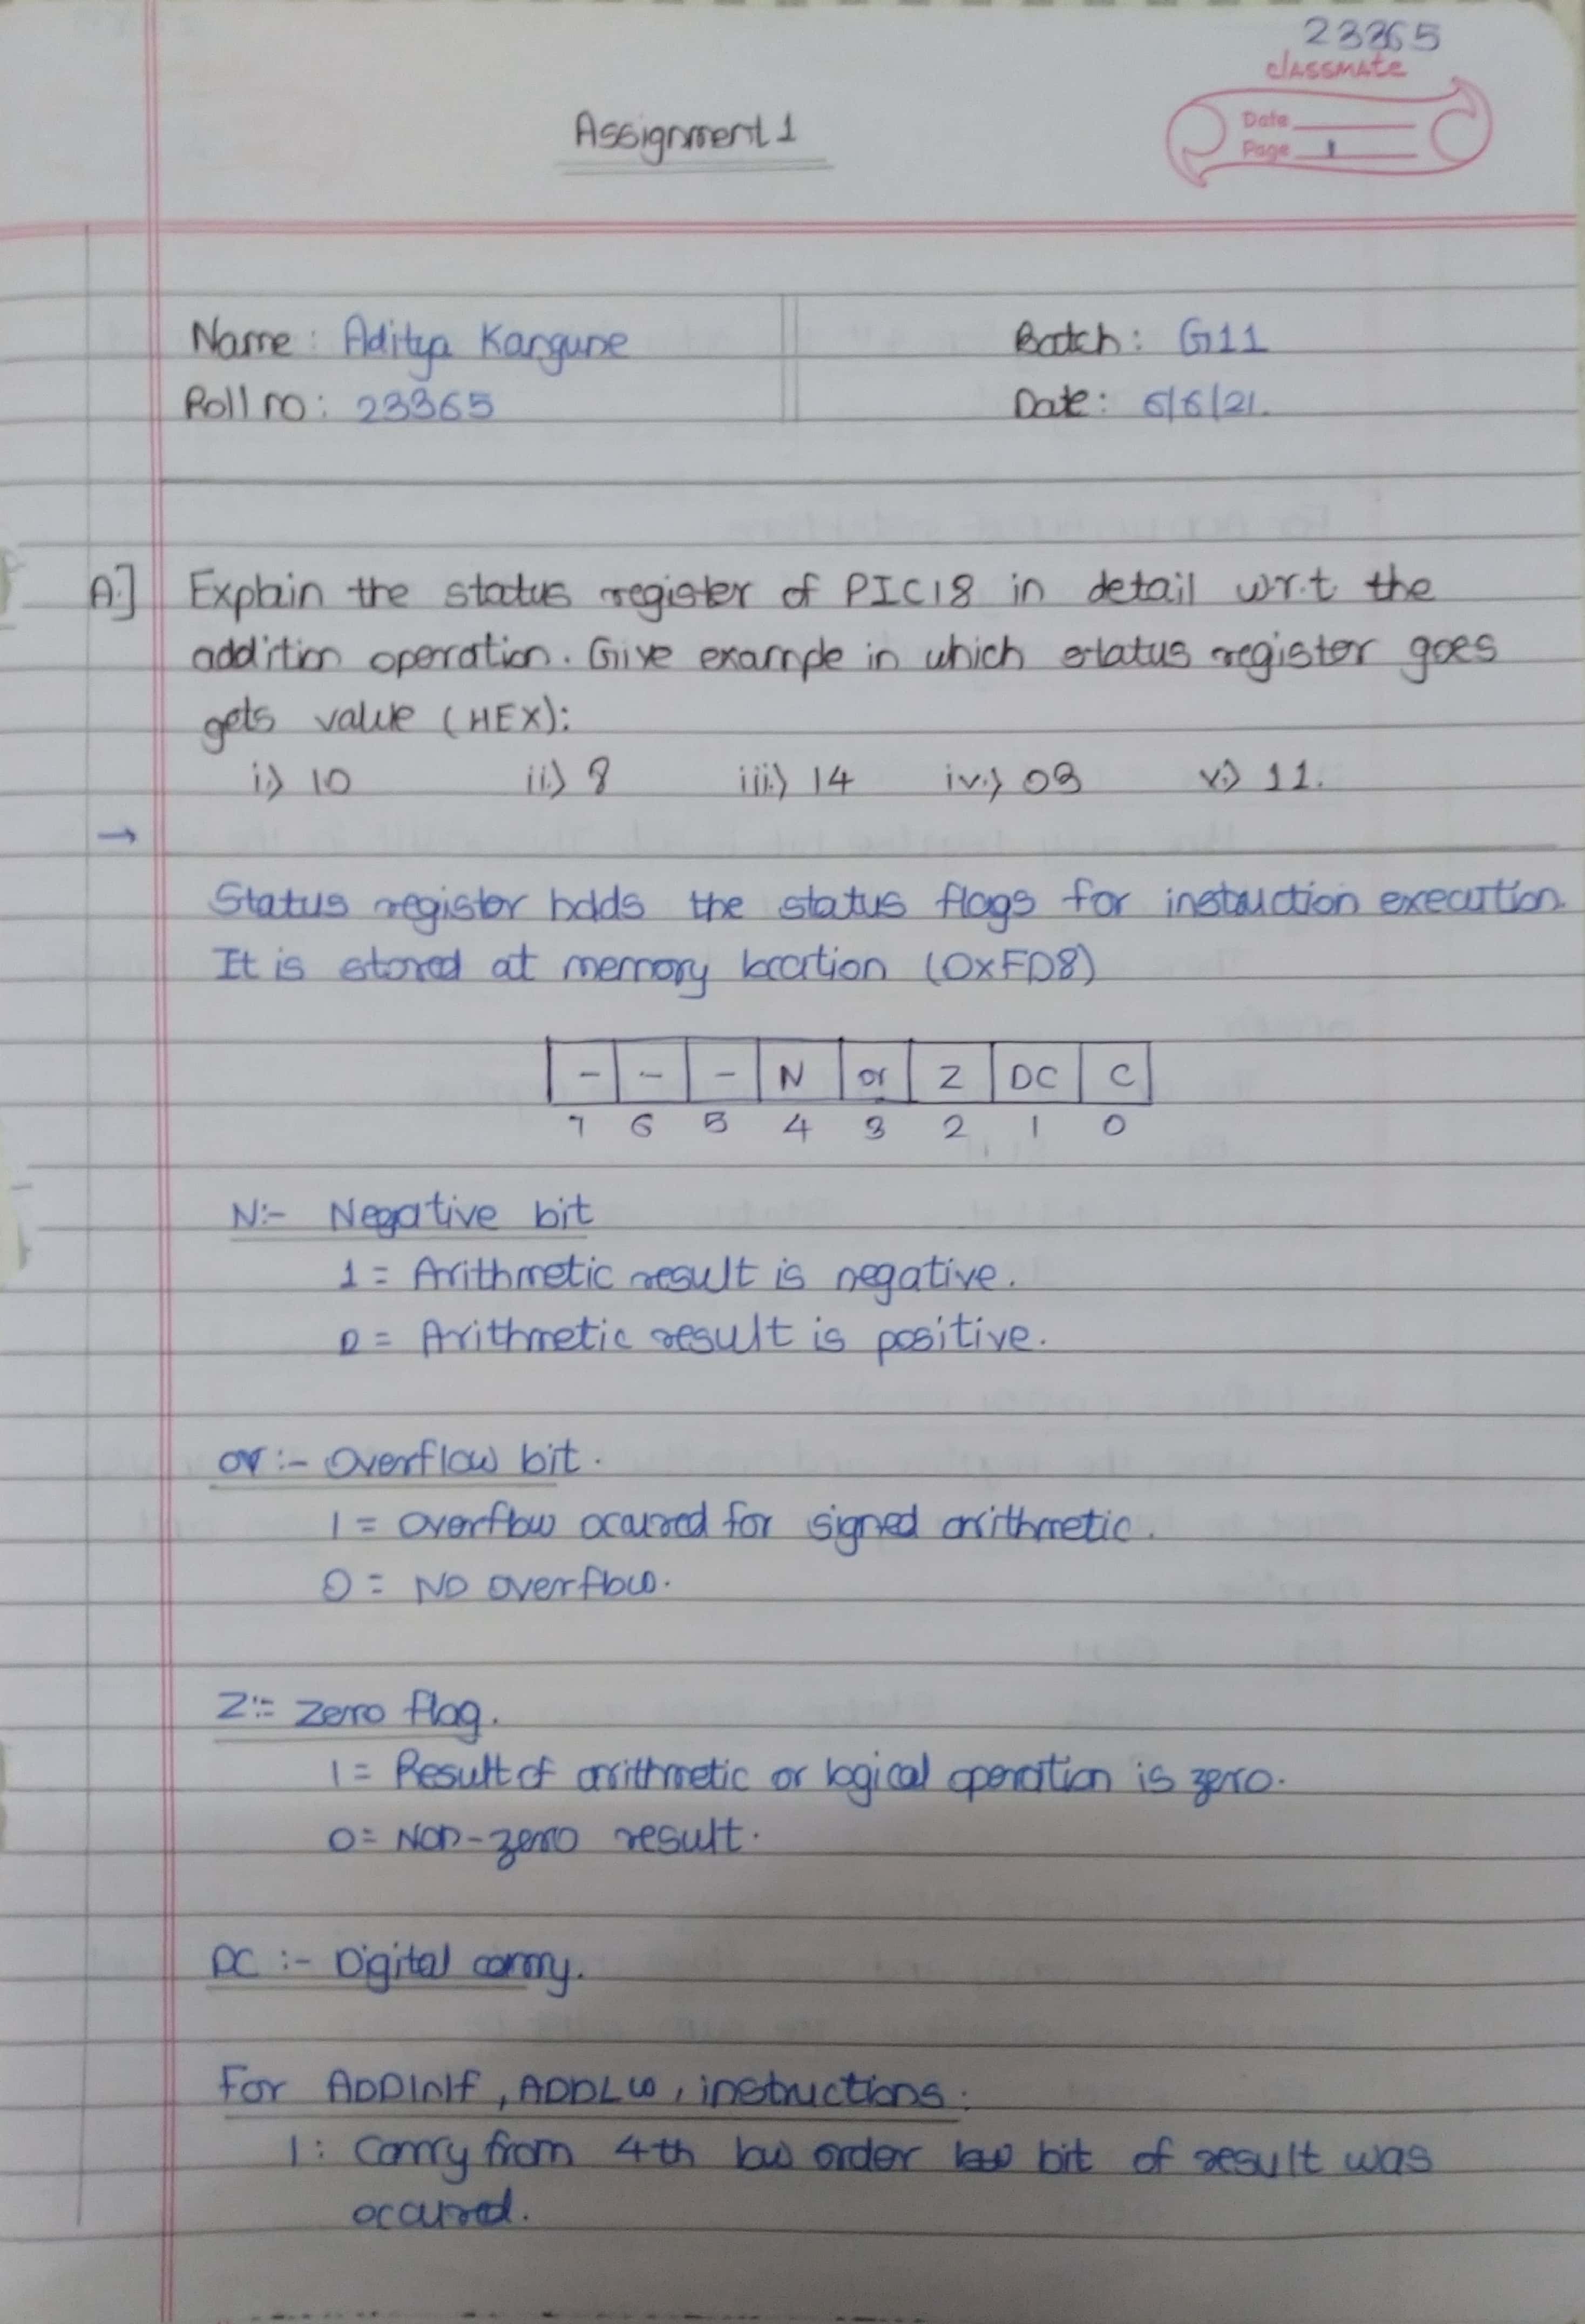 23365
classmate
Date
Page 1
Assignment 1
Name: Aditya Kangune
Batch: G11
Roll no: 23365
Date: 6/6/21.
A.] Explain the status register of PIC18 in detail w.r.t the
addition operation. Give example in which status register goes
gets value (HEX):
i.) 10 ii.) 8 iii.) 14 iv.) 03 v.) 11.
→
Status register holds the status flags for instruction execution.
It is stored at memory location (0xFD8)
- - - N ov Z DC C
7 6 5 4 3 2 1 0
N:- Negative bit
1 = Arithmetic result is negative.
0 = Arithmetic result is positive.
ov :- Overflow bit.
1 = overflow ocurred for signed arithmetic.
0 = No overflow.
Z:= Zero flag.
1 = Result of arithmetic or logical operation is zero.
0 = Non-zero result.
DC :- Digital carry.
For ADDWf, ADDLW, instructions:
1: Carry from 4th low order bit of result was
ocurred.